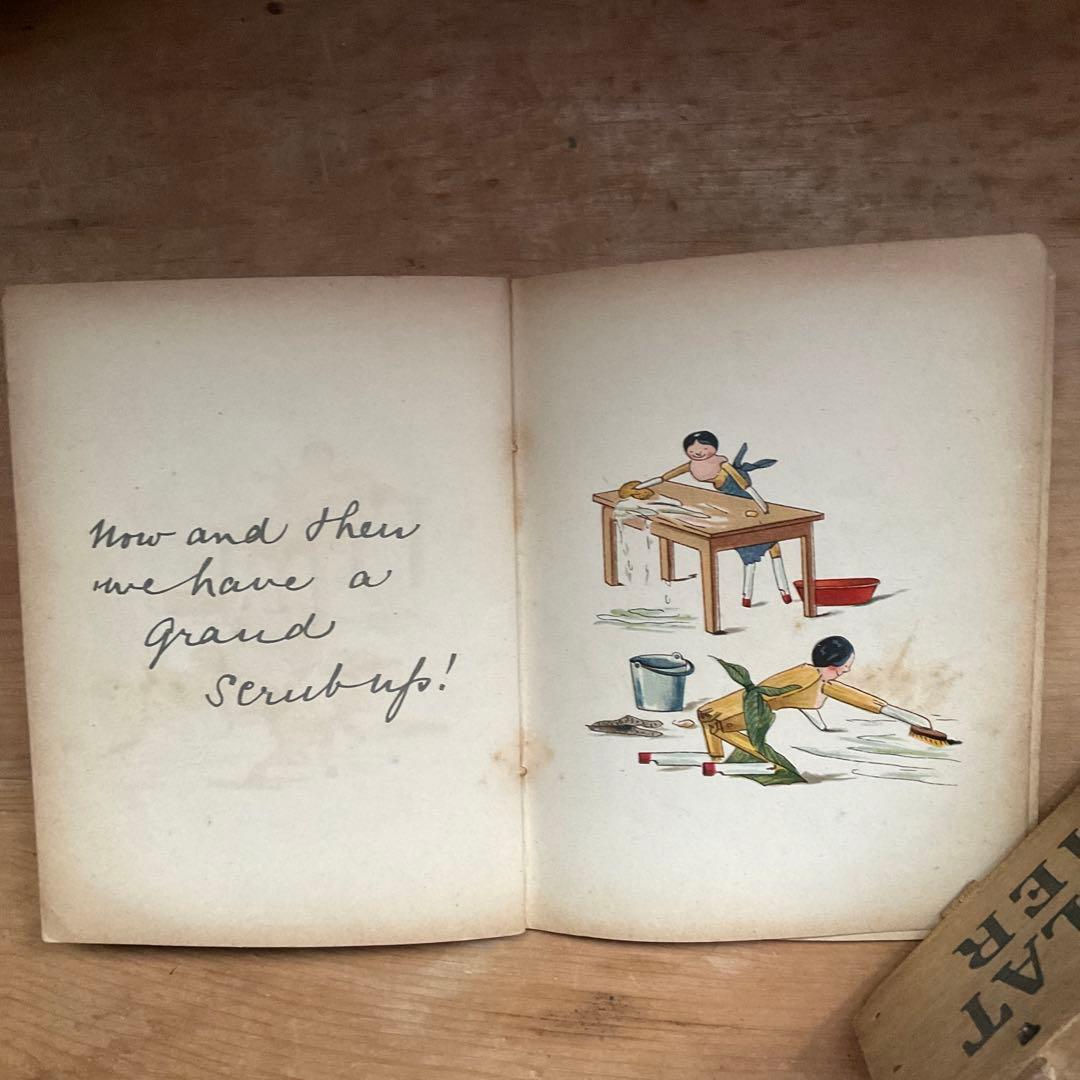 Now and then
we have a
grand
scrub up!
LAT
ER